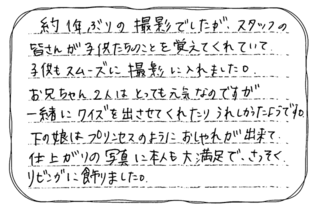 約1年ぶりの撮影でしたが、スタッフの
皆さんが子供たちのことを覚えてくれていて
子供もスムーズに撮影に入れました。
お兄ちゃん2人はとっても元気なのですが
一緒にクイズを出させてくれたりうれしかったようです。
下の娘はプリンセスのようにおしゃれが出来て
仕上がりの写真に本人も大満足で、さっそく
リビングに飾りました。